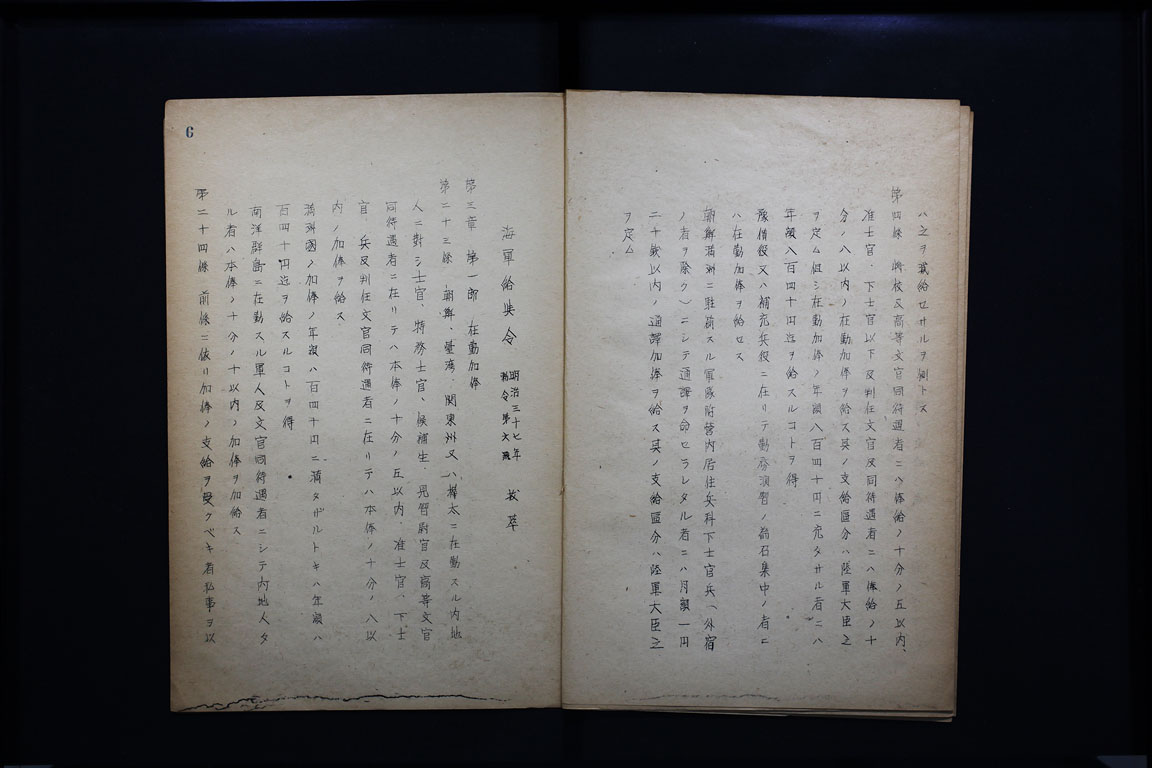 ハ之ヲ載給セサルヲ例トス
第四條 将校及高等文官同待遇者ニハ俸給ノ十分ノ五以内、
准士官、下士官以下及判任文官及同待遇者ニハ俸給ノ十
分ノ八以内ノ在勤加俸ヲ給ス其ノ支給區分ハ陸軍大臣之
ヲ定ム但シ在勤加俸ノ年額八百四十円ニ充タサル者ニハ
年額八百四十円迄ヲ給スルコトヲ得
豫備役又ハ補充兵役ニ在リテ勤務演習ノ為召集中ノ者ニ
ハ在勤加俸ヲ給セス
朝鮮満洲ニ駐箚スル軍隊附營内居住兵科下士官兵(外宿
ノ者ヲ除ク)ニシテ通譯ヲ命セラレタル者ニハ月額一円
二十銭以内ノ通譯加俸ヲ給ス其ノ支給區分ハ陸軍大臣之
ヲ定ム
海軍給與令 明治三十七年 勅令第六號 抜萃
第三章 第一節 在勤加俸
第二十三條 朝鮮、臺湾、関東州又ハ樺太ニ在勤スル内地
人ニ對シ士官、特務士官、候補生、見習尉官及高等文官
同待遇者ニ在リテハ本俸ノ十分ノ五以内、准士官、下士
官、兵及判任文官同待遇者ニ在リテハ本俸ノ十分ノ八以
内ノ加俸ヲ給ス
満洲國ノ加俸ノ年額ハ百四十円ニ満タザルトキハ年額ハ
百四十円迄ヲ給スルコトヲ得
南洋群島ニ在勤スル軍人及文官同待遇者ニシテ内地人タ
ル者ハ本俸ノ十分ノ十以内ノ加俸ヲ加給ス
第二十四條 前條ニ依リ加俸ノ支給ヲ受クベキ者私事ヲ以
6